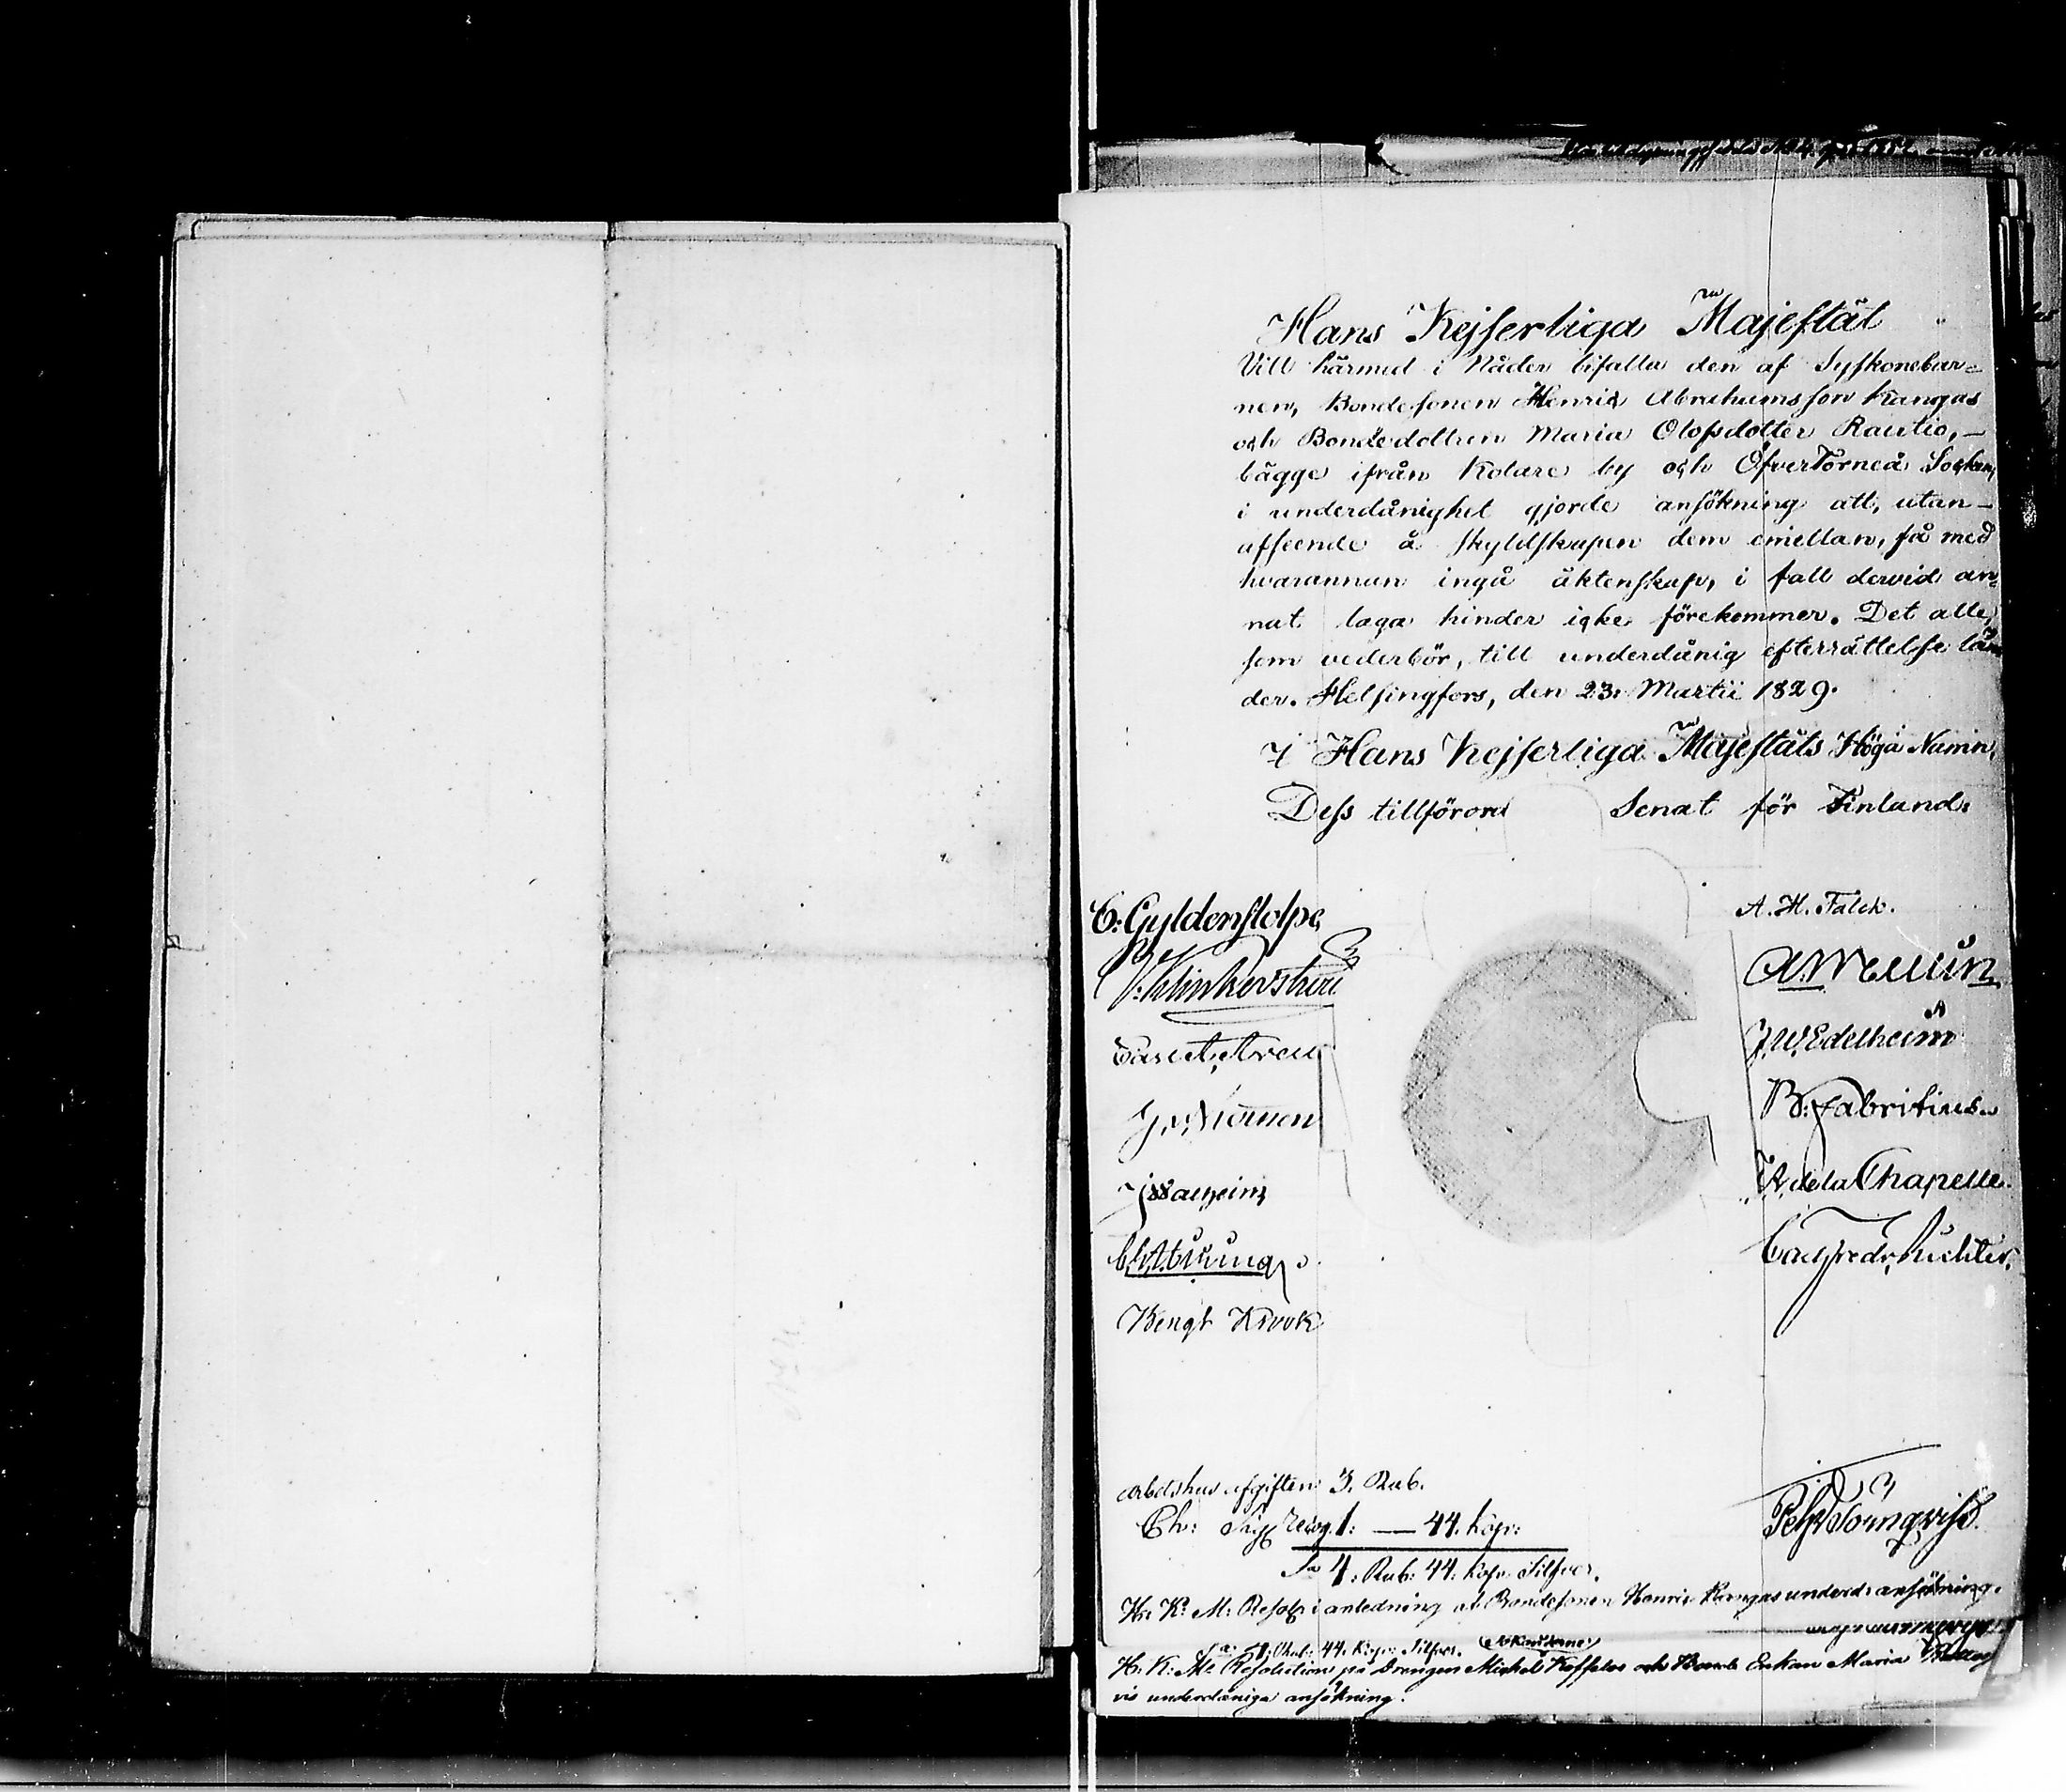 Hans Kejserliga Majestät
Vill härmed i Nåder bifalla den af Syskonebar=
nen, Bondesonen Henric Abrahamsson Kangas
och Bondedottren Maria Olofsdotter Rautio, –
bägge ifrån Kolare by och Öfvertorneå Socken,
i underdånighet gjorde ansökning att, utan –
afseende å skyldskapen dem emellan, få med
hvarannan ingå äktenskap, i fall dervid an=
nat laga hinder icke förekommer. Det alle,
som vederbör, till underdånig efterrättelse län
der. Helsingfors, den 23. Martii 1829.
I Hans Kejserliga Majestäts Höga Namn,
Dess tillförord Senat för Finland.
C. Gyldenstolpe
A. H. Falck.
J. W. Edelheim
B. Fabritius.
de la Chapelle.
Bengt Krook
Arbetshus afgiften 3. Rub.
Ch: Sig Recog. 1: — 44. kop:
Sa 4. Rub: 44. kop. Silfver.
Pehr Törnqvist.
H. K. M. Resol: i anledning af Bondesonen Henric Kangas underd: ansökning.
Sa: 4. Rub: 44. kop. Silfver.
H. K. Ms Resolution på Drengen Michel och Bonde Enkan Maria
underdåniga ansökning.